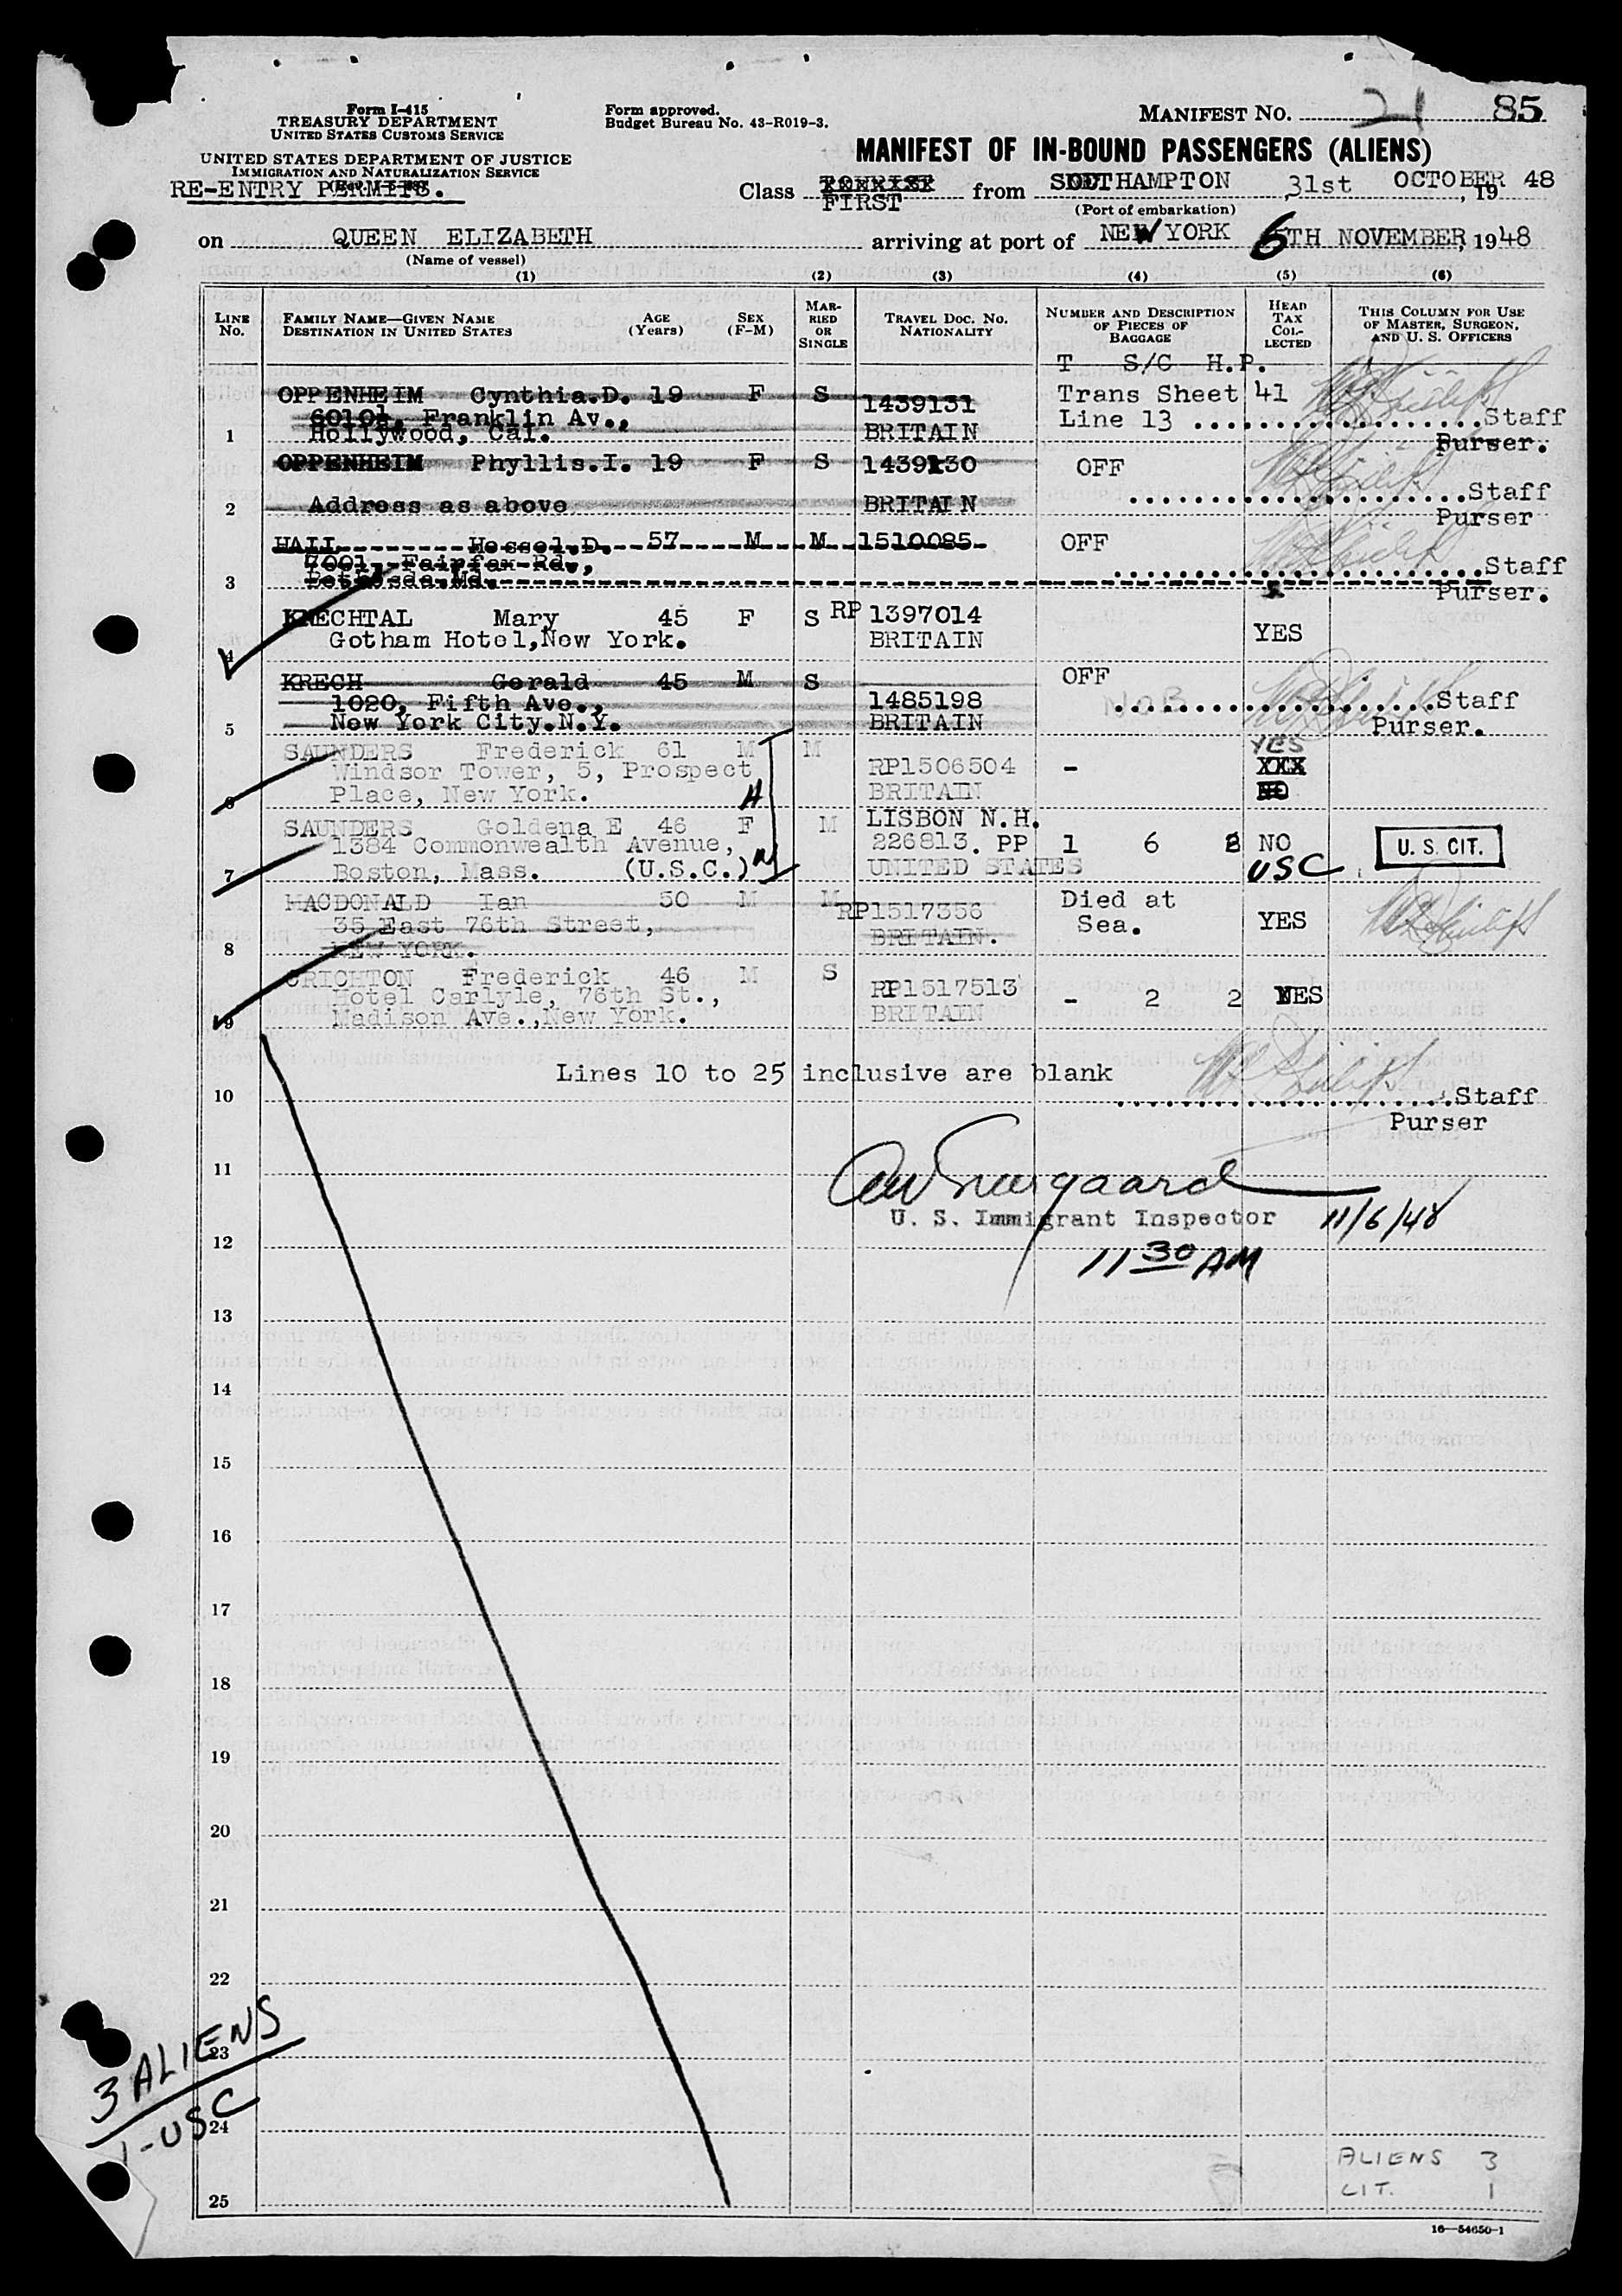 Form I-415
TREASURY DEPARTMENT
UNITED STATES CUSTOMS SERVICE
UNITED STATES DEPARTMENT OF JUSTICE
IMMIGRATION AND NATURALIZATION SERVICE
RE-ENTRY PERMITS.
Form approved.
Budget Bureau No. 43-R019-3.
MANIFEST NO. 21 85
MANIFEST OF IN-BOUND PASSENGERS (ALIENS)
Class TOURIST FIRST from SOUTHAMPTON, 31st OCTOBER, 19 48
(Port of embarkation)
on QUEEN ELIZABETH arriving at port of NEW YORK 6TH NOVEMBER, 1948
(Name of vessel)
(1) (2) (3) (4) (5) (6)
LINE No.
FAMILY NAME—GIVEN NAME DESTINATION IN UNITED STATES
AGE (Years)
SEX (F-M)
MARRIED OR SINGLE
TRAVEL DOC. NO. NATIONALITY
NUMBER AND DESCRIPTION OF PIECES OF BAGGAGE
HEAD TAX COLLECTED
THIS COLUMN FOR USE OF MASTER, SURGEON, AND U. S. OFFICERS
T S/C H.P.
OPPENHEIM Cynthia.D. 19 F S 1439131 Trans Sheet 41
6010½, Franklin Av., Line 13 Staff
1 Hollywood, Cal. BRITAIN Purser.
OPPENHEIM Phyllis.I. 19 F S 1439130 OFF
Staff
2 Address as above BRITAIN Purser
HALL Hessel.D. 57 M M 1510085 OFF
7001, Fairfax Rd., Staff
3 Bethesda.Md. Purser.
KNECHTAL Mary 45 F S RP 1397014
Gotham Hotel,New York. BRITAIN YES
4
KRECH Gerald 45 M S OFF
1020, Fifth Ave., 1485198 NOB Staff
5 New York City.N.Y. BRITAIN Purser.
SAUNDERS Frederick 61 M M YES
Windsor Tower, 5, Prospect RP1506504 - XXX
6 Place, New York. H BRITAIN NO
SAUNDERS Goldena E 46 F M LISBON N.H.
1384 Commonwealth Avenue, 226813. PP 1 6 2 NO U. S. CIT.
7 Boston, Mass. (U.S.C.) W UNITED STATES USC
MACDONALD Ian 50 M M RP1517356 Died at
35 East 76th Street, Sea. YES
8 NEW YORK. BRITAIN.
CRICHTON Frederick 46 M S
Hotel Carlyle, 76th St., RP1517513 - 2 2 YES
9 Madison Ave.,New York. BRITAIN
Lines 10 to 25 inclusive are blank
10 Staff
Purser
11
U. S. Immigrant Inspector 11/6/48
12
11 30 AM
13
14
15
16
17
18
19
20
21
22
3 ALIENS
23
1-USC
24
ALIENS 3
CIT. 1
25
16—54650-1